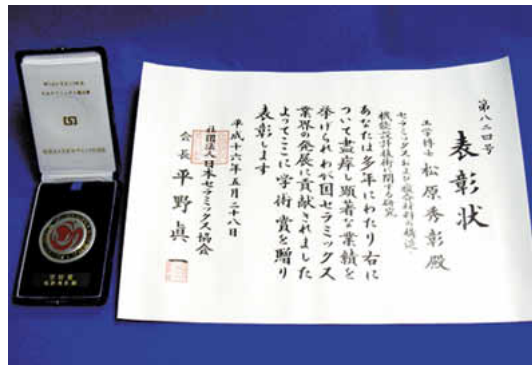 第八二四号
表彰状
工学博士 松原秀彰殿
セラミックスおよび複合材料の構造・
機能設計技術に関する研究
あなたは多年にわたり右に
ついて盡瘁し顕著な業績を
挙げられわが国セラミックス
業界の発展に貢献されました
よってここに学術賞を贈り
表彰します
平成十六年五月二十八日
社団法人日本セラミックス協会
会長 平野眞一